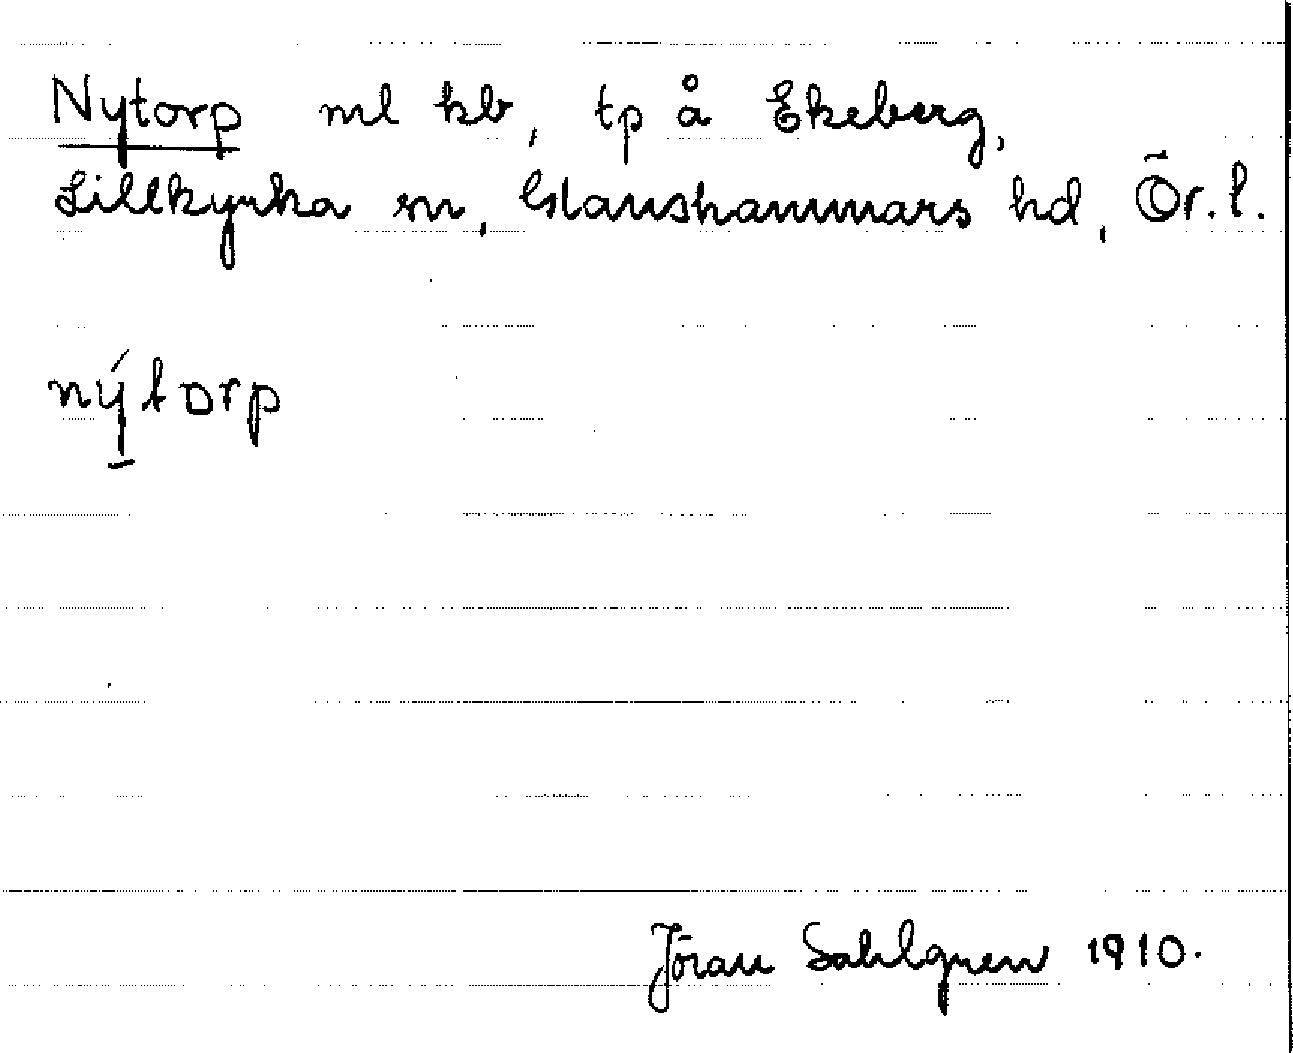 Nytorp ml kb, tp å Ekeberg,
Lillkyrka sn, Glanshammars hd, Ör. l.
nýtorp
Jöran Sahlgren 1910.